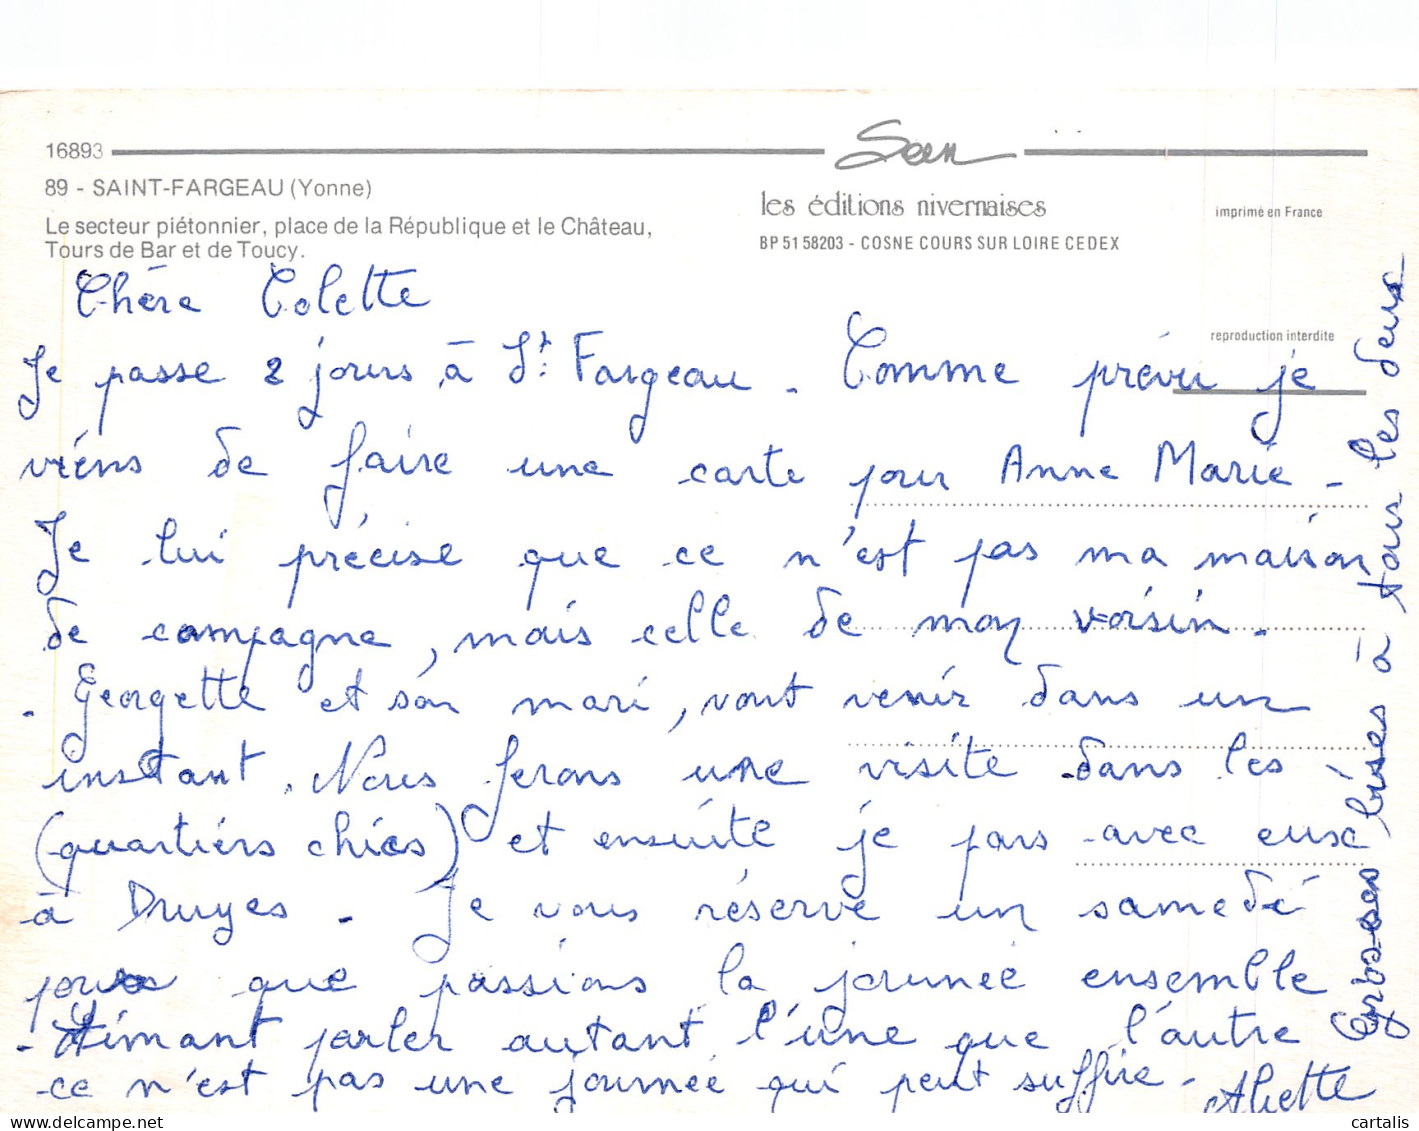 16893
Seen
89 - SAINT-FARGEAU (Yonne)
Le secteur piétonnier, place de la République et le Château,
Tours de Bar et de Toucy.
les éditions nivernaises
BP 51 58203 - COSNE COURS SUR LOIRE CEDEX
imprimé en France
reproduction interdite
Chère Colette
Je passe 2 jours à St Fargeau - Comme prévu je
viens de faire une carte pour Anne Marie -
Je lui précise que ce n'est pas ma maison
de campagne, mais celle de mon voisin -
- Georgette et son mari, vont venir dans un
instant. Nous ferons une visite dans les
(quartiers chics) et ensuite je pars avec eux
à Druyes - Je vous réserve un samedi
pour que passions la journée ensemble
- Aimant parler autant l'une que l'autre
ce n'est pas une journée qui peut suffire -
Aliette
Grosses bises à tous les deux
cartalis